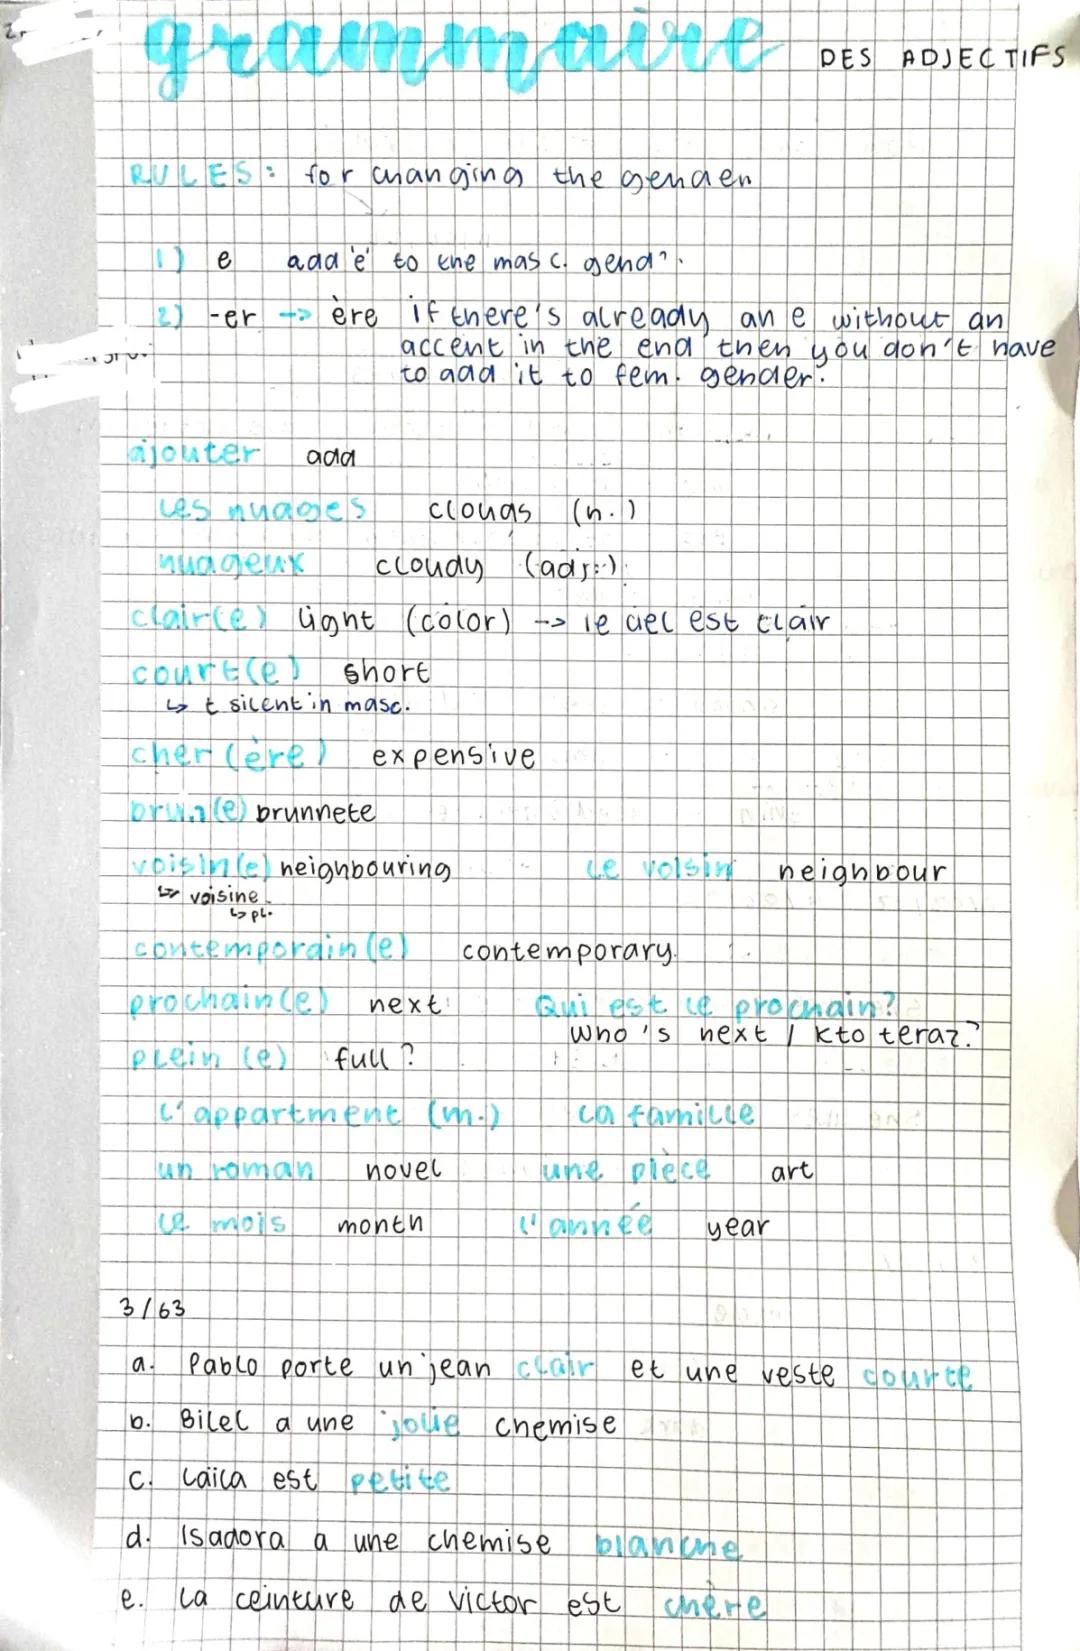 grammaire DES ADJECTIFS
RULES: for changing the gender
1) e add 'e' to the masc. gend.
2) -er --> ère if there's already an e without an
accent in the end then you don't have
to add it to fem. gender.
ajouter add
les nuages clouds (n.)
nuageux cloudy (adj.)
clair(e) light (color) --> le ciel est clair
court(e) short
↳ t silent in masc.
cher (ère) expensive
brun(e) brunnete
voisin(e) neighbouring le voisin neighbour
↳ voisine
↳ pl.
contemporain(e) contemporary
prochain(e) next Qui est le prochain?
who's next / kto teraz?
plein (e) full?
l'appartment (m.) la famille
un roman novel une pièce art
le mois month l'année year
3/63
a. Pablo porte un jean clair et une veste courte
b. Bilel a une jolie chemise
c. Laïla est petite
d. Isadora a une chemise blanche
e. La ceinture de Victor est chère